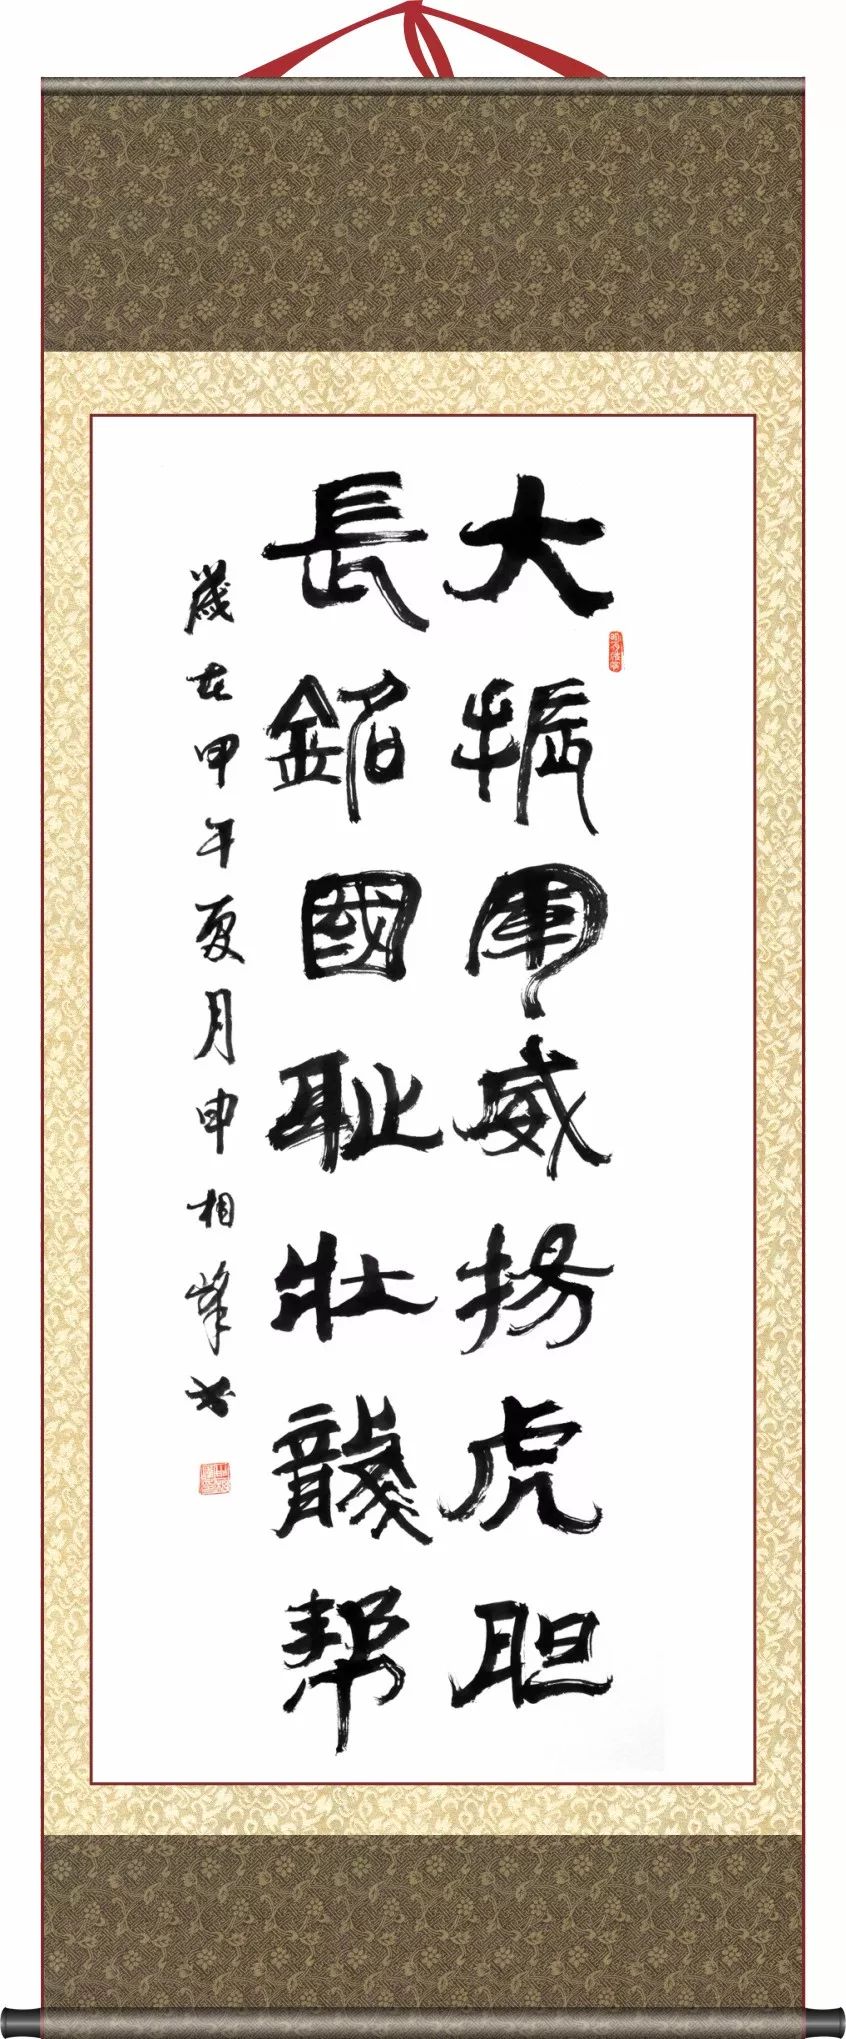 大振軍威揚虎胆
長銘國耻壮龍帮
歲在甲午夏月申相峰书